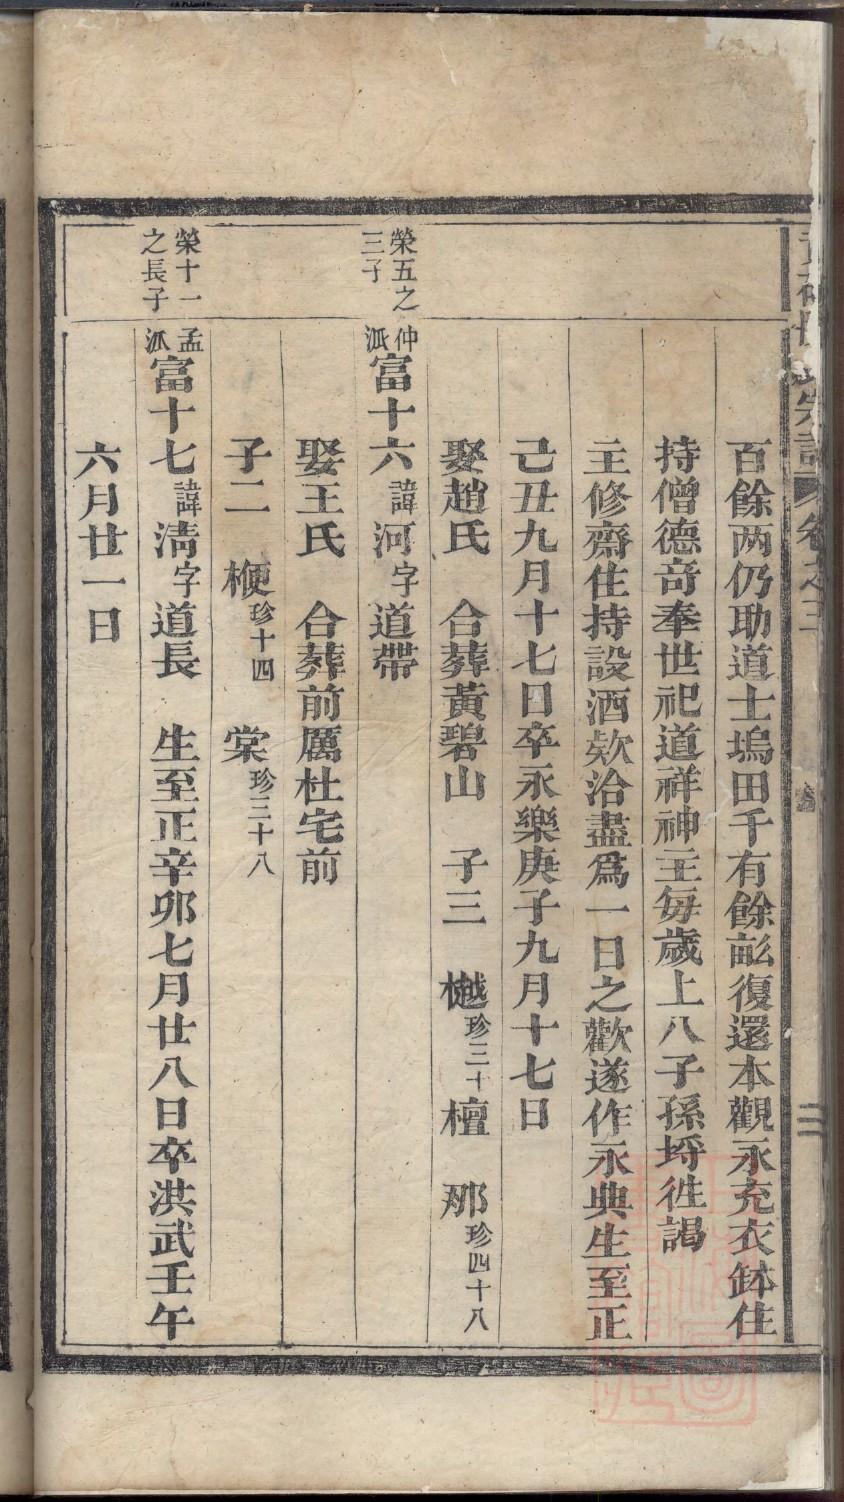 宗譜 卷之三 二
百餘两仍助道士塢田千有餘畝復還本觀永充衣鉢住
持僧德奇奉世祀道祥神主每歲上八子孫埓徃謁
主修齋住持設酒欵洽盡為一日之歡遂作永典生至正
己丑九月十七日卒永樂庚子九月十七日
娶趙氏 合葬黃碧山 子三 樾珍三十 檀 那珍四十八
榮五之三子
仲派富十六諱河字道帶
娶王氏 合葬前厲杜宅前
子二 楩珍十四 棠珍三十八
榮十一之長子
孟派富十七諱淸字道長 生至正辛卯七月廿八日卒洪武壬午
六月廿一日